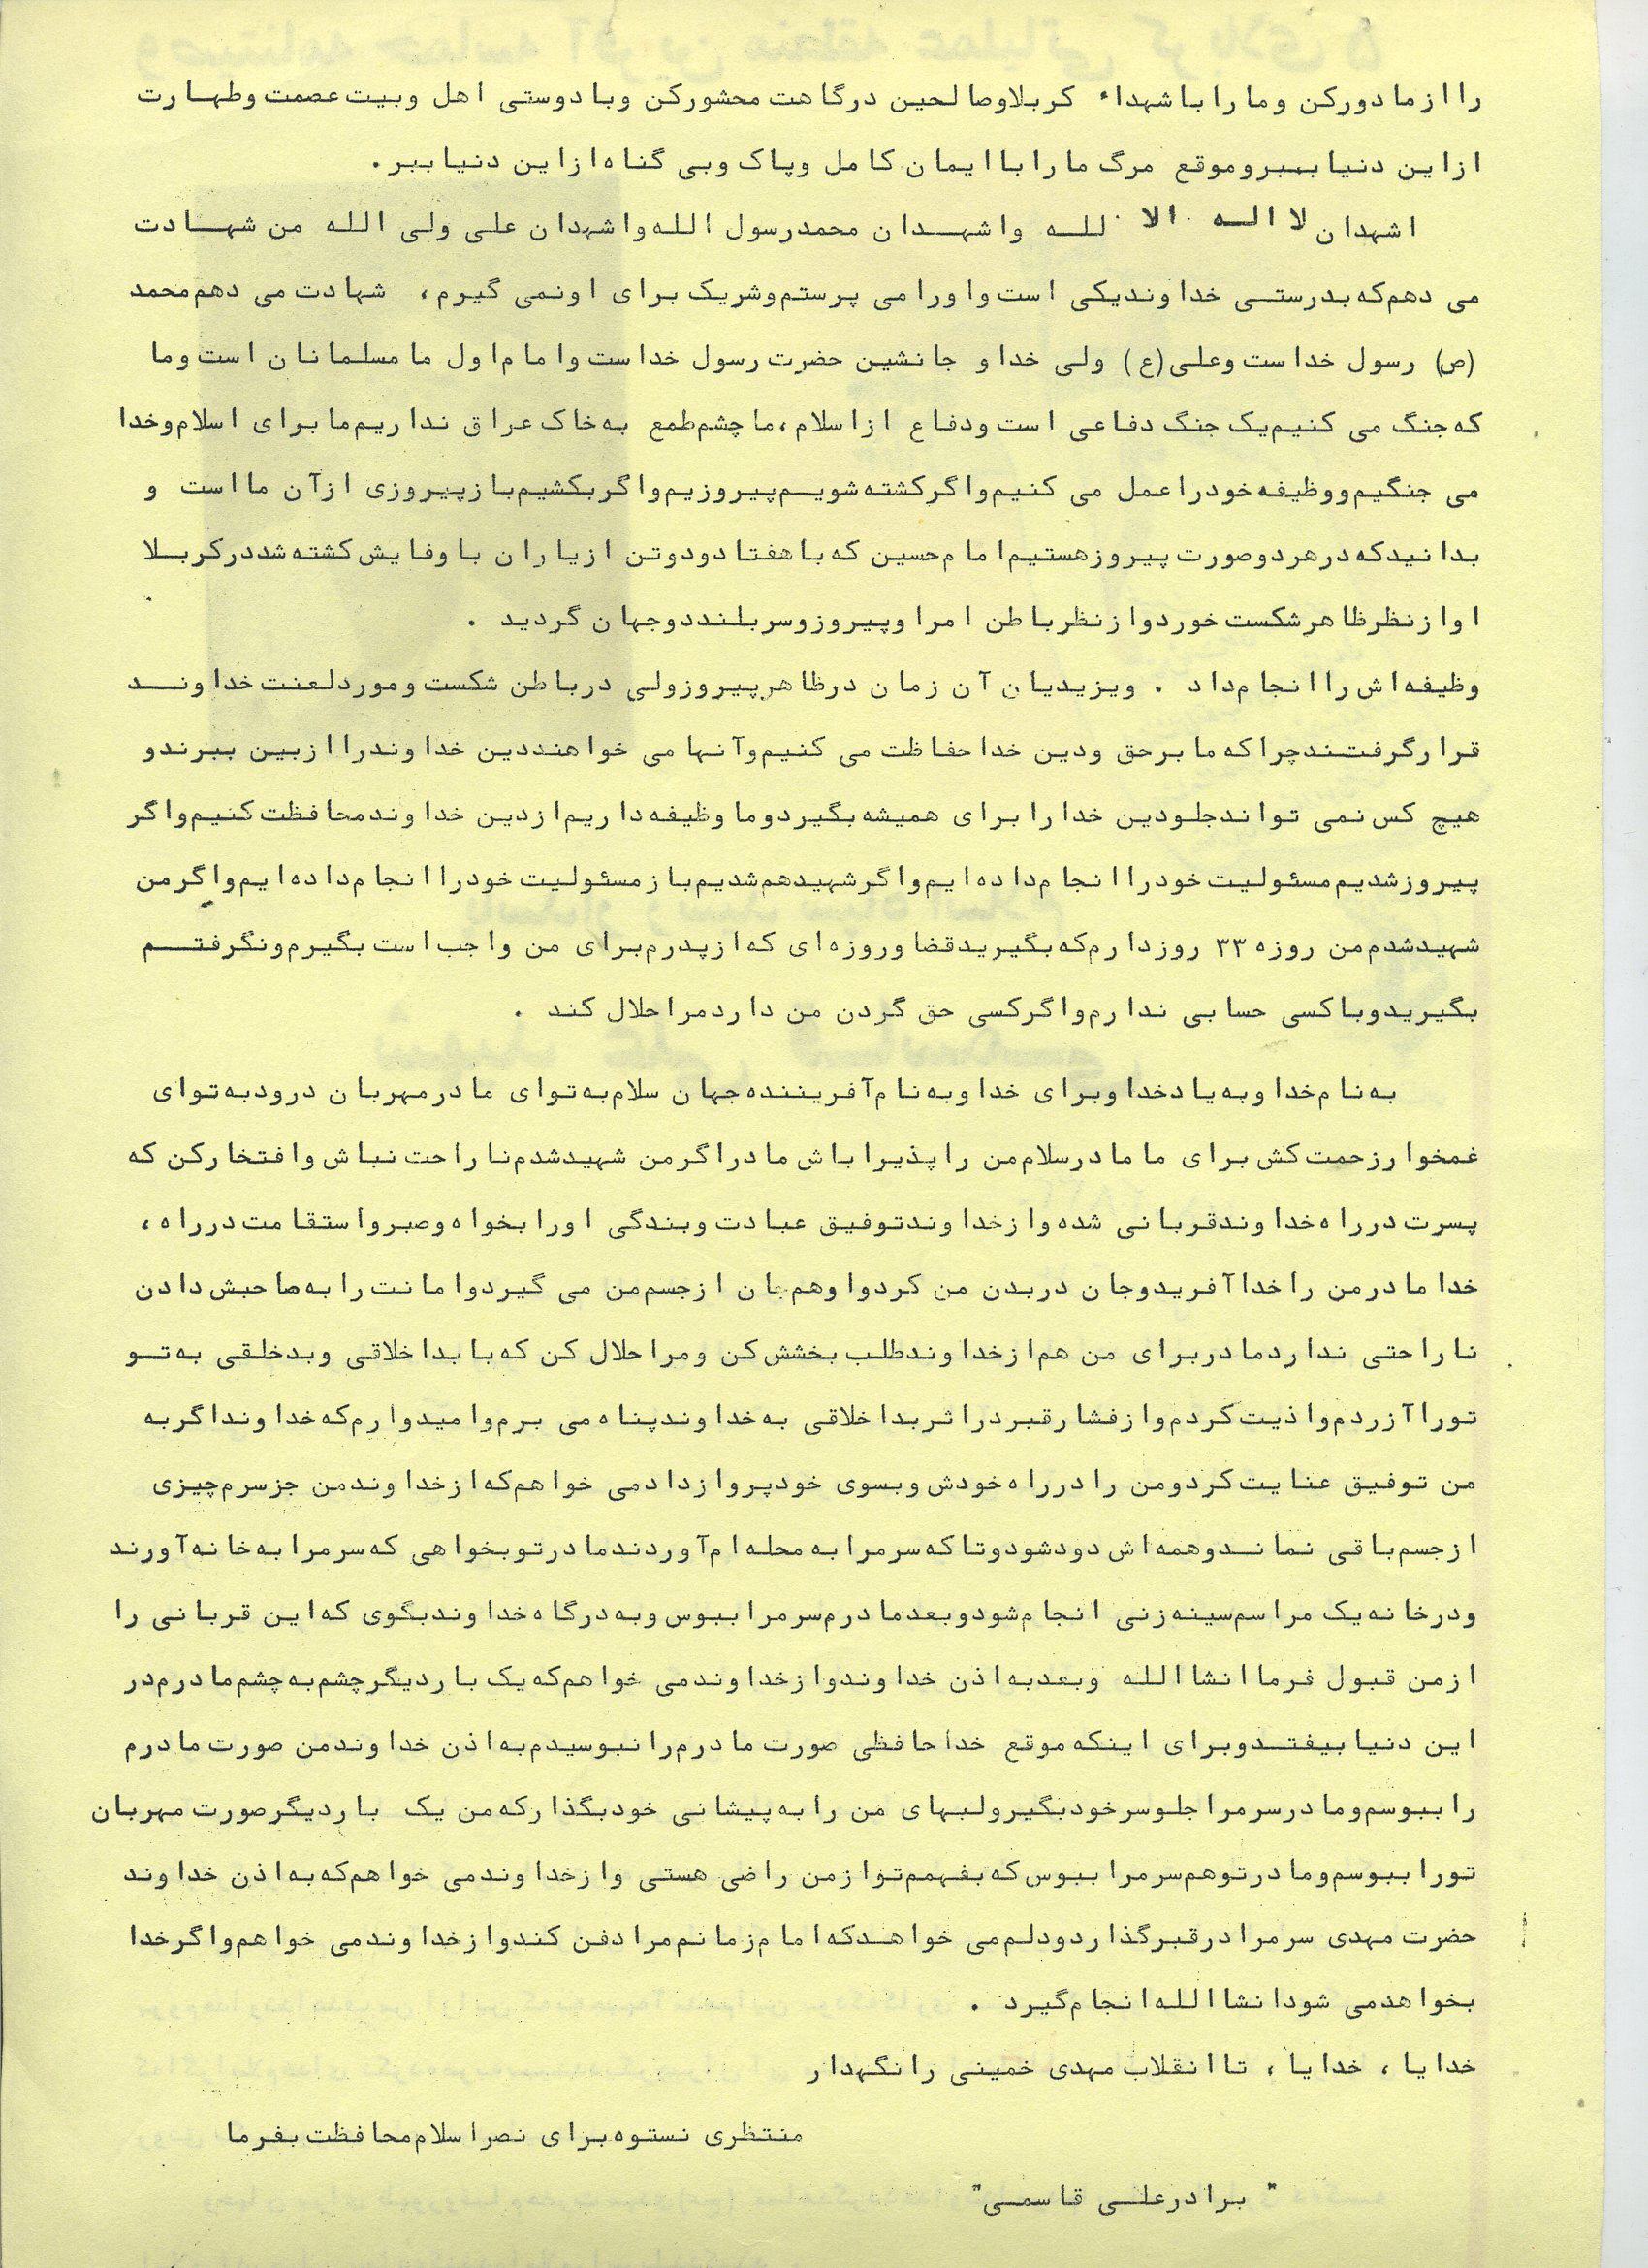 را از ما دور کن و ما را با شهداء کربلا و صالحین درگاهت محشور کن و با دوستی اهل و بیت عصمت و طهارت
از این دنیا ببر و موقع مرگ ما را با ایمان کامل و پاک و بی گناه از این دنیا ببر .
اشهدان لا اله الا لله و اشهدان محمد رسول الله و اشهدان علی ولی الله من شهادت
می دهم که بدرستی خداوند یکی است و او را می پرستم و شریک برای او نمی گیرم ، شهادت می دهم محمد
(ص) رسول خداست و علی (ع) ولی خدا و جانشین حضرت رسول خداست و امام اول ما مسلمانان است و ما
که جنگ می کنیم یک جنگ دفاعی است و دفاع از اسلام ، ما چشم طمع به خاک عراق نداریم ما برای اسلام و خدا
می جنگیم و وظیفه خود را عمل می کنیم و اگر کشته شویم پیروزیم و اگر بکشیم باز پیروزی از آن ما است و
بدانید که در هر دو صورت پیروز هستیم امام حسین که با هفتاد و دو تن از یاران با وفایش کشته شد در کربلا
او از نظر ظاهر شکست خورد و از نظر باطن امر او پیروز و سربلند دو جهان گردید .
وظیفه اش را انجام داد . و یزیدیان آن زمان در ظاهر پیروز ولی در باطن شکست و مورد لعنت خداوند
قرار گرفتند چرا که ما بر حق و دین خدا حفاظت می کنیم و آنها می خواهند دین خداوند را از بین ببرند و
هیچ کس نمی تواند جلو دین خدا را برای همیشه بگیرد و ما وظیفه داریم از دین خداوند محافظت کنیم و اگر
پیروز شدیم مسئولیت خود را انجام داده ایم و اگر شهید هم شدیم باز مسئولیت خود را انجام داده ایم و اگر من
شهید شدم من روزه ۳۳ روز دارم که بگیرید قضا و روزه ای که از پدرم برای من واجب است بگیرم و نگرفتم
بگیرید و با کسی حسابی ندارم و اگر کسی حق گردن من دارد مرا حلال کند .
به نام خدا و به یاد خدا و برای خدا و به نام آفریننده جهان سلام به تو ای مادر مهربان درود به تو ای
غمخوار زحمت کش برای ما مادر سلام من را پذیرا باش مادر اگر من شهید شدم ناراحت نباش و افتخار کن که
پسرت در راه خداوند قربانی شده و از خداوند توفیق عبادت و بندگی او را بخواه و صبر و استقامت در راه ،
خدا مادر من را خدا آفرید و جان در بدن من کرد و او هم جان از جسم من می گیرد و امانت را به صاحبش دادن
ناراحتی ندارد مادر برای من هم از خداوند طلب بخشش کن و مرا حلال کن که با بداخلاقی و بدخلقی به تو
تو را آزردم و اذیت کردم و از فشار قبر در اثر بداخلاقی به خداوند پناه می برم و امیدوارم که خداوند اگر به
من توفیق عنایت کرد و من را در راه خودش و بسوی خود پرواز داد می خواهم که از خداوند من جز سرم چیزی
از جسم باقی نماند و همه اش دود شود و تا که سر مرا به محله ام آوردند مادر تو بخواهی که سر مرا به خانه آورند
و در خانه یک مراسم سینه زنی انجام شود و بعد مادرم سر مرا ببوس و به درگاه خداوند بگوی که این قربانی را
از من قبول فرما انشا الله و بعد به اذن خداوند و از خداوند می خواهم که یک بار دیگر چشم به چشم مادرم در
این دنیا بیفتد و برای اینکه موقع خداحافظی صورت مادرم را نبوسیدم به اذن خداوند من صورت مادرم
را ببوسم و مادر سر مرا جلو سر خود بگیر و لبهای من را به پیشانی خود بگذار که من یک بار دیگر صورت مهربان
تو را ببوسم و مادر تو هم سر مرا ببوس که بفهمم تو از من راضی هستی و از خداوند می خواهم که به اذن خداوند
حضرت مهدی سر مرا در قبر گذارد و دلم می خواهد که امام زمانم مرا دفن کند و از خداوند می خواهم و اگر خدا
بخواهد می شود انشا الله انجام گیرد .
خدایا ، خدایا ، تا انقلاب مهدی خمینی را نگهدار
منتظری نستوه برای نصر اسلام محافظت بفرما
" برادر علی قاسمی "